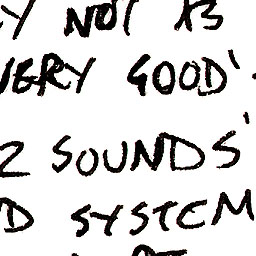 Y NOT AS
VERY GOOD'.
2 SOUNDS'
D SYSTEM